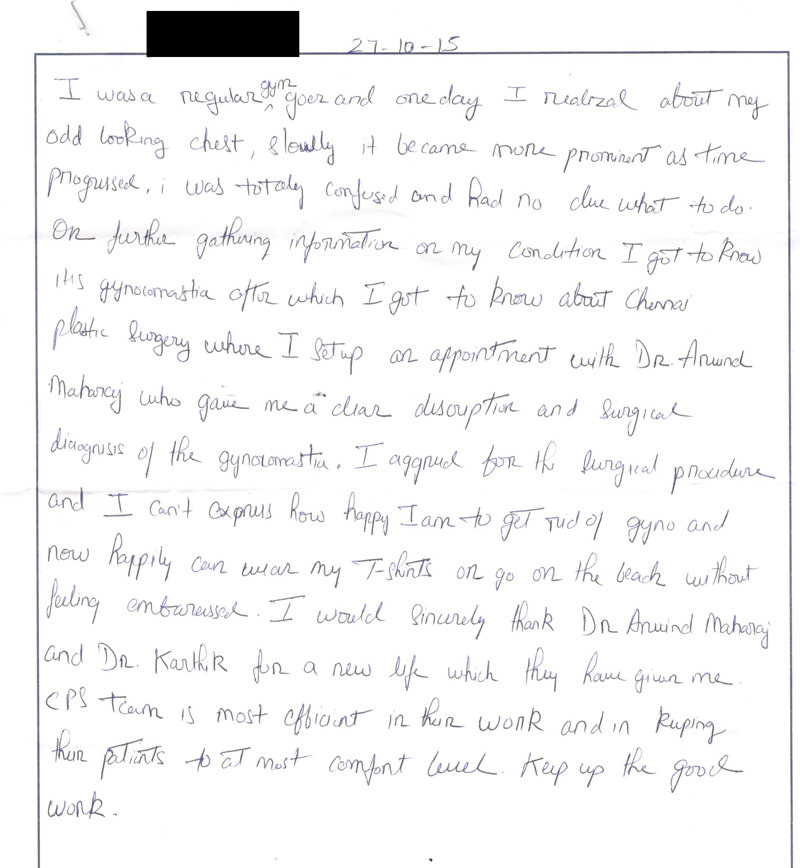 27-10-15
I was a regular gym goer and one day I realizal about my
odd looking chest, slowlly it became more prominent as time
progressed, i was totaly confused and had no clue what to do.
On further gathering information on my condition I got to know
its gynocomastia after which I got to know about Chennai
plastic Surgery where I setup an appointment with Dr. Arvind
Maharaj who gave me a clear discription and surgical
diaognisis of the gynocomastia. I aggreed for the surgical procedure
and I can't express how happy I am to get rid of gyno and
now happily can wear my T-shirts or go on the beach without
feeling embaressed. I would sincerely thank Dr Arvind Maharaj
and Dr. Karthik for a new life which they have given me.
CPS team is most efficient in their work and in keeping
their patients to at most comfort level. Keep up the good
work.